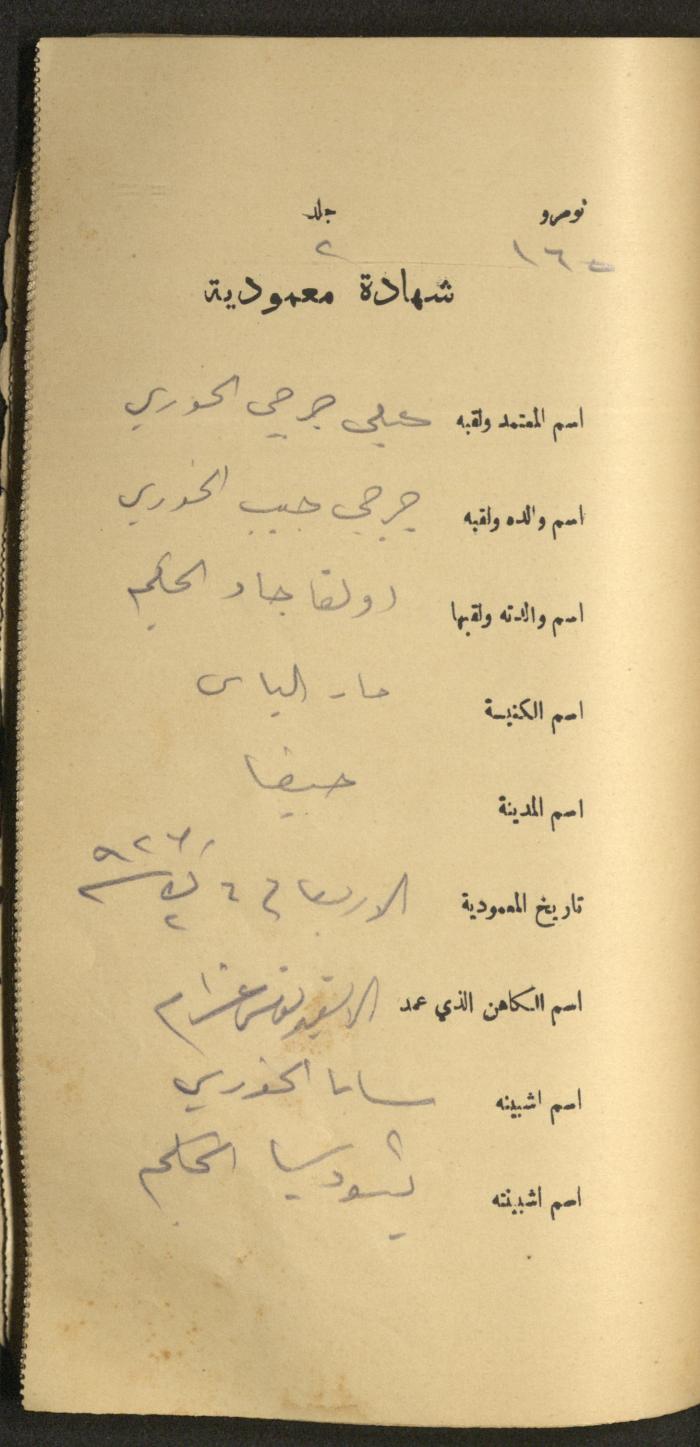 نومرو جلد
١٦٥ ٢
شهادة معمودية
اسم المعتمد ولقبه جرجي الخوري
اسم والده ولقبه جرجي حبيب الخوري
اسم والدته ولقبها اولغا جاد الحكيم
اسم الكنيسة مار الياس
اسم المدينة حيفا
تاريخ المعمودية الاربعا في ٦ ك٢ ٩٢٦
اسم الكاهن الذي عمد
اسم اشبينه سابا الخوري
اسم اشبينته الحكيم